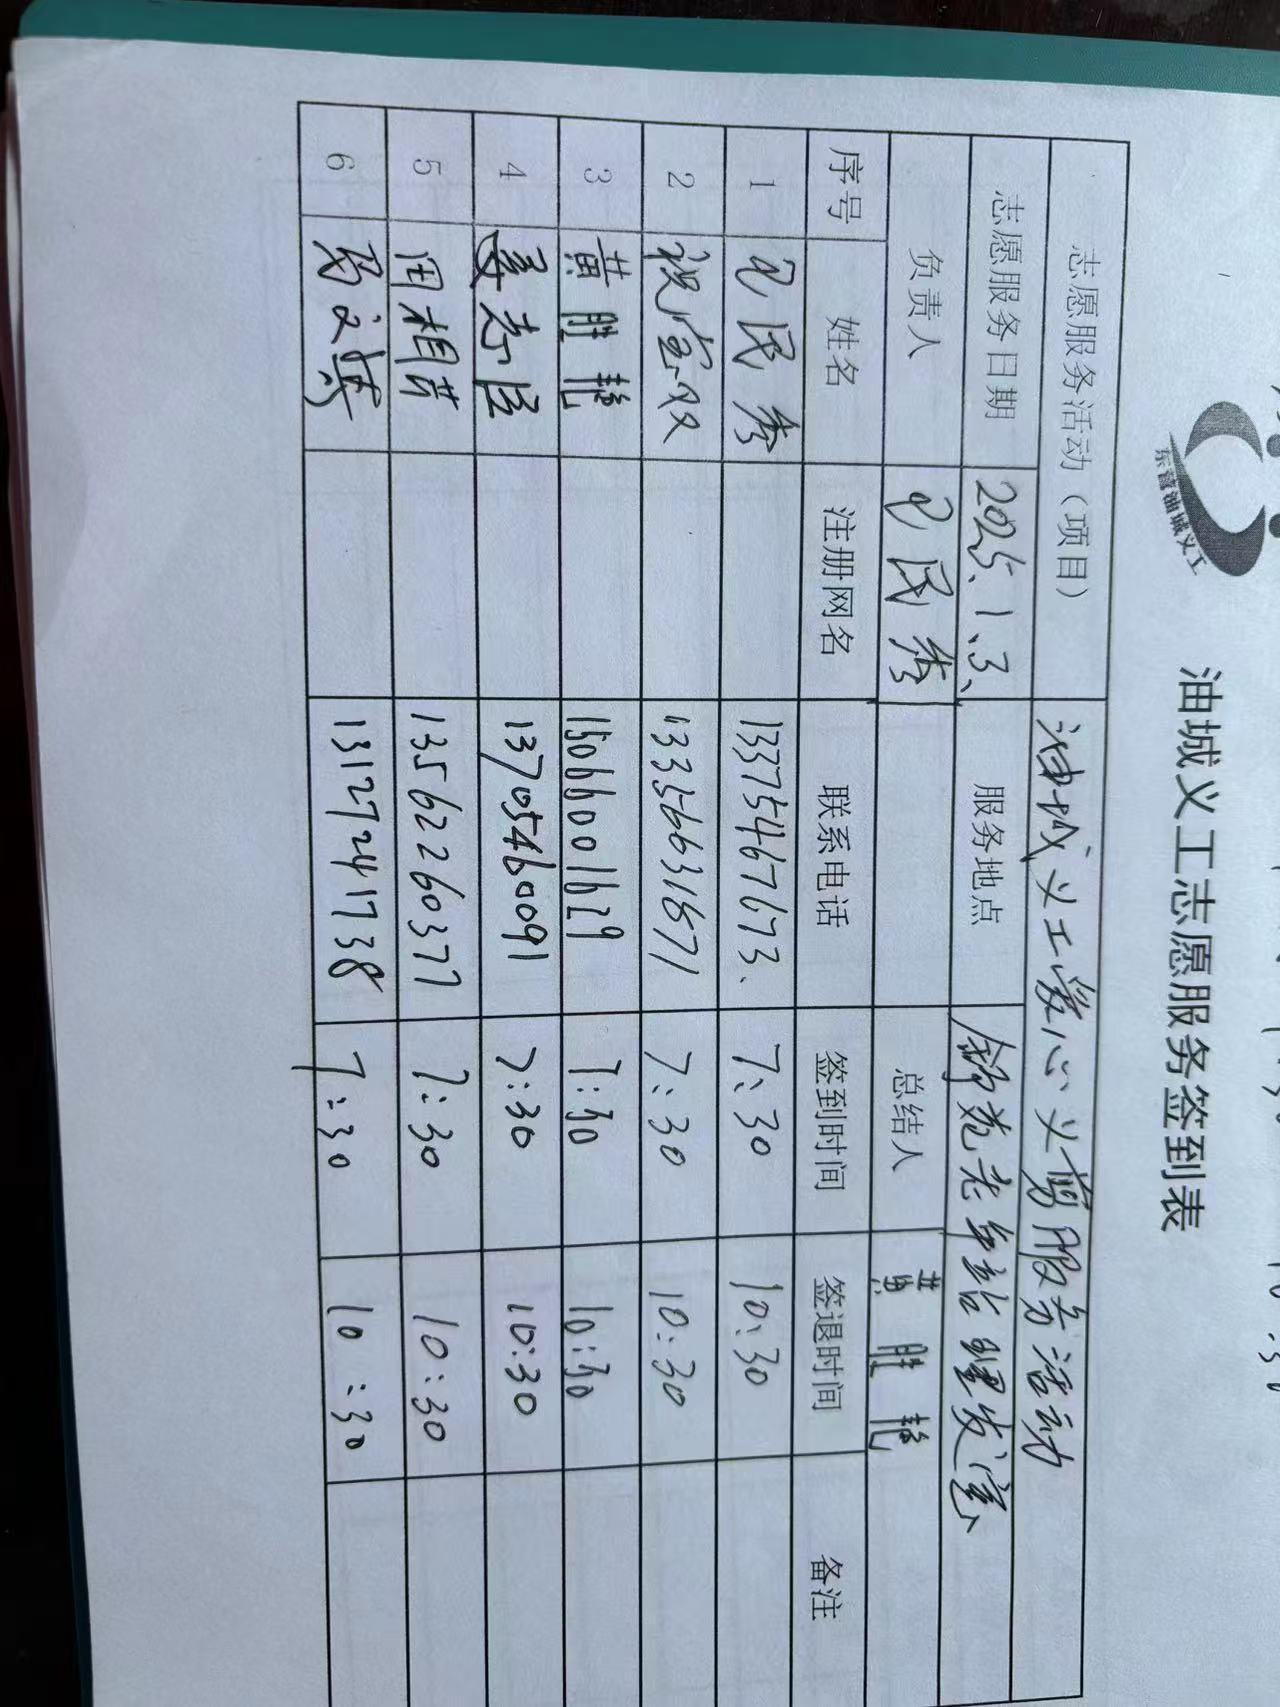 东营油城义工
油城义工志愿服务签到表
志愿服务活动（项目） 油城义工爱心义剪服务活动
志愿服务日期 2025、1、3、 服务地点 锦苑老年站理发室
负责人 民秀 总结人 黄胜艳
序号 姓名 注册网名 联系电话 签到时间 签退时间 备注
1 民秀 13375467673、 7:30 10:30
2 祝宝双 13356631871 7:30 10:30
3 黄胜艳 15066001629 7:30 10:30
4 13705460091 7:30 10:30
5 田相芹 13562260377 7:30 10:30
6 13127241738 7:30 10:30